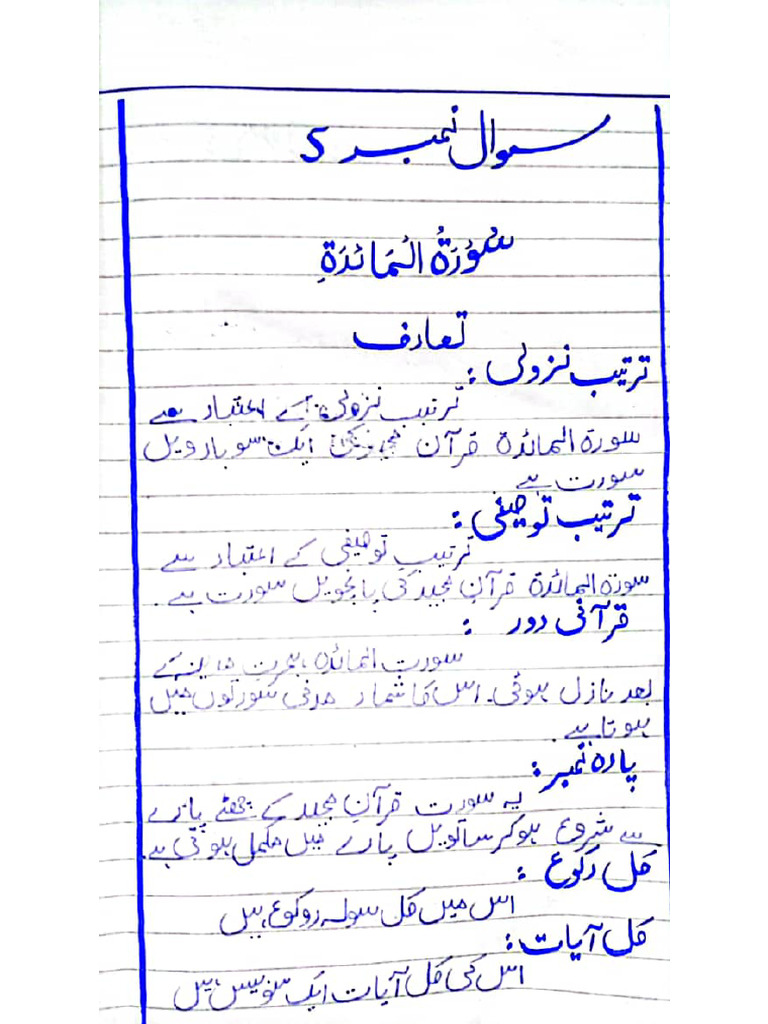 سوال نمبر 5
سُوْرَةُ الْمَائدَةِ
تعارف
ترتیب نزولی:
ترتیب نزولی کے اعتبار سے
سورۃ المائدۃ قرآن مجید کی ایک سو بارویں
سورت ہے
ترتیب توصیفی:
ترتیب توصیفی کے اعتبار سے
سورۃ المائدۃ قرآن مجید کی پانچویں سورت ہے۔
قرآنی دور :
سورت المائدہ ہجرت مدینہ کے
بعد نازل ہوئی۔ اس کا شمار مدنی سورتوں میں
ہوتا ہے۔
پارہ نمبر:
یہ سورت قرآن مجید کے چھٹے پارے
سے شروع ہو کر ساتویں پارے میں مکمل ہوتی ہے۔
کل رکوع :
اس میں کل سولہ روکوع ہیں
کل آیات:
اس کی کل آیات ایک سو بیس ہیں